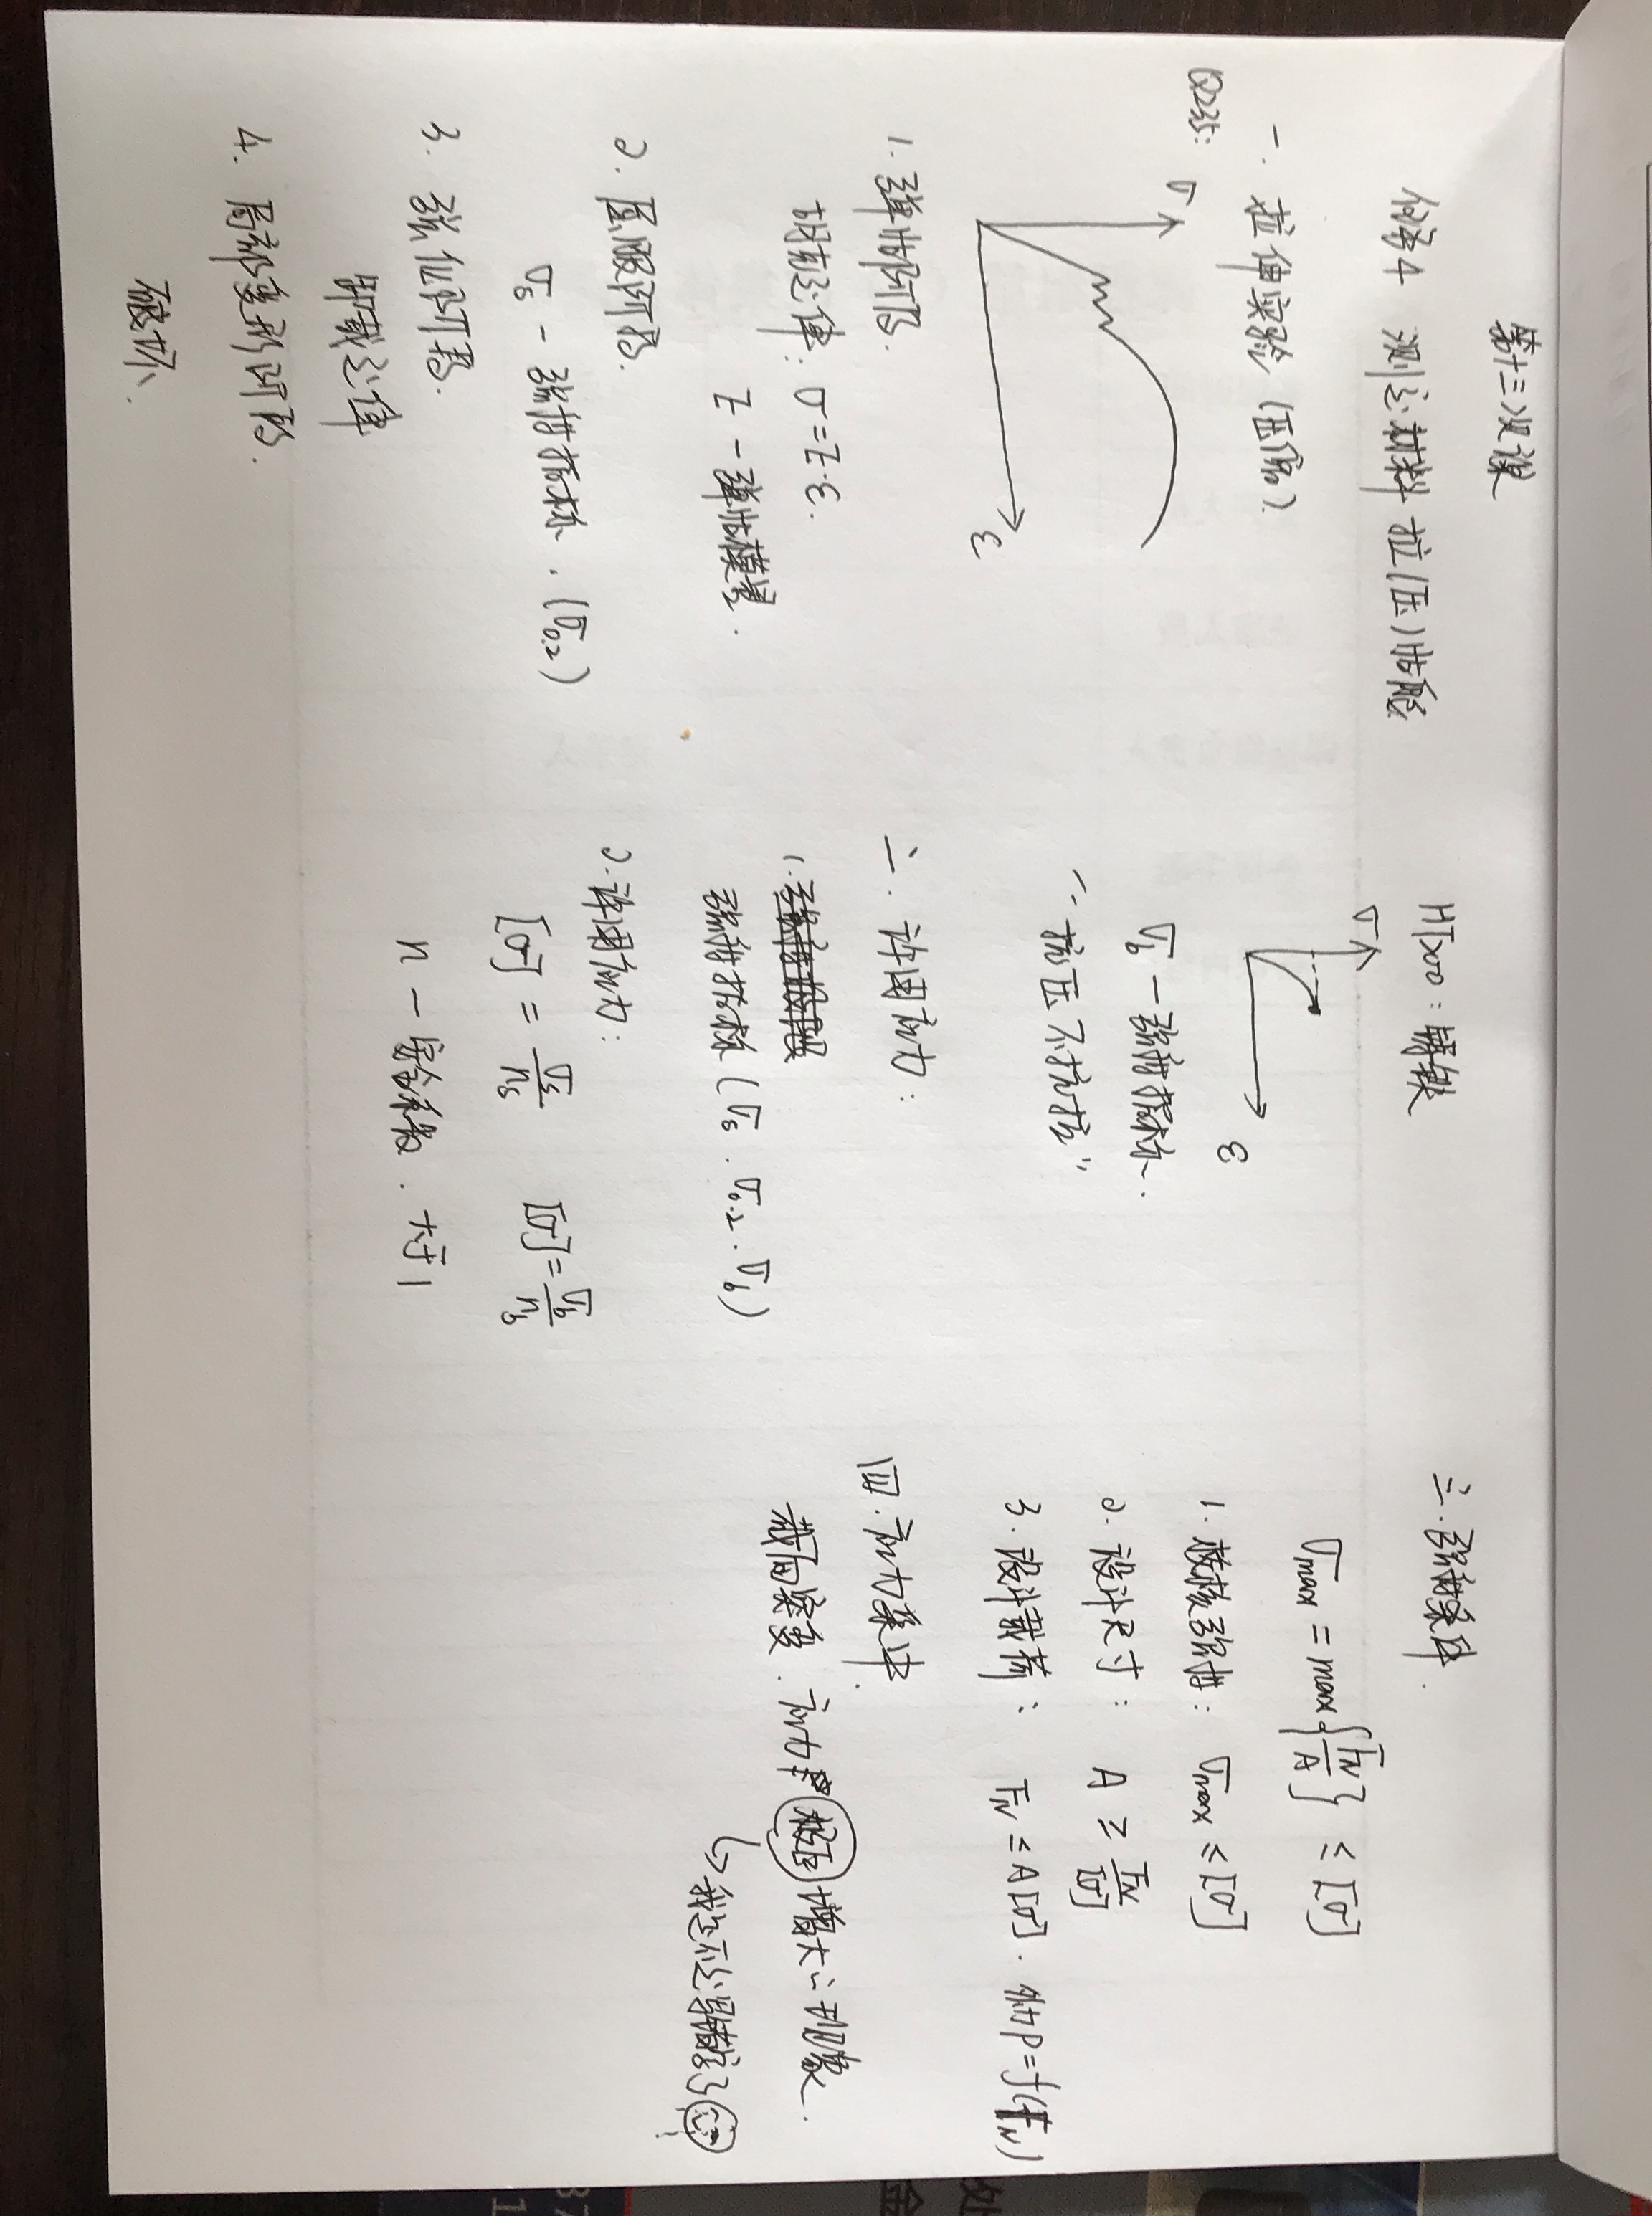 第十三次课
任务4 测定材料拉(压)性能
一. 拉伸实验(压缩)
Q235:
σ
ε
1. 弹性阶段.
胡克定律: σ=E·ε.
E - 弹性模量.
2. 屈服阶段.
σs - 强度指标. (σ0.2)
3. 强化阶段.
卸载定律
4. 局部变形阶段.
破坏.
HT200: 铸铁
σ
ε
σb - 强度指标.
"抗压不抗拉"
二. 许用应力:
1.
强度指标 (σs. σ0.2. σb)
2. 许用应力:
[σ] = σs/ns [σ] = σb/nb
n - 安全系数. 大于1
三. 强度条件.
σmax = max{FN/A} ≤ [σ]
1. 校核强度: σmax ≤ [σ]
2. 设计尺寸: A ≥ FN/[σ]
3. 设计载荷: FN ≤ A[σ]. 外力P=f(FN)
四. 应力集中.
截面突变. 应力 增大的现象.
我总不是写错了